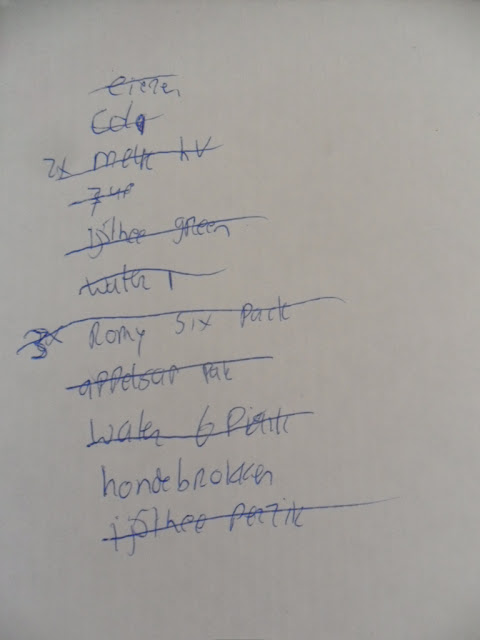 eieren
Cola
2x melk hv
7up
ijsthee green
water 1
3x Romy six pack
appelsap pak
water 6 Pack
hondebrokken
ijsthee Perzik